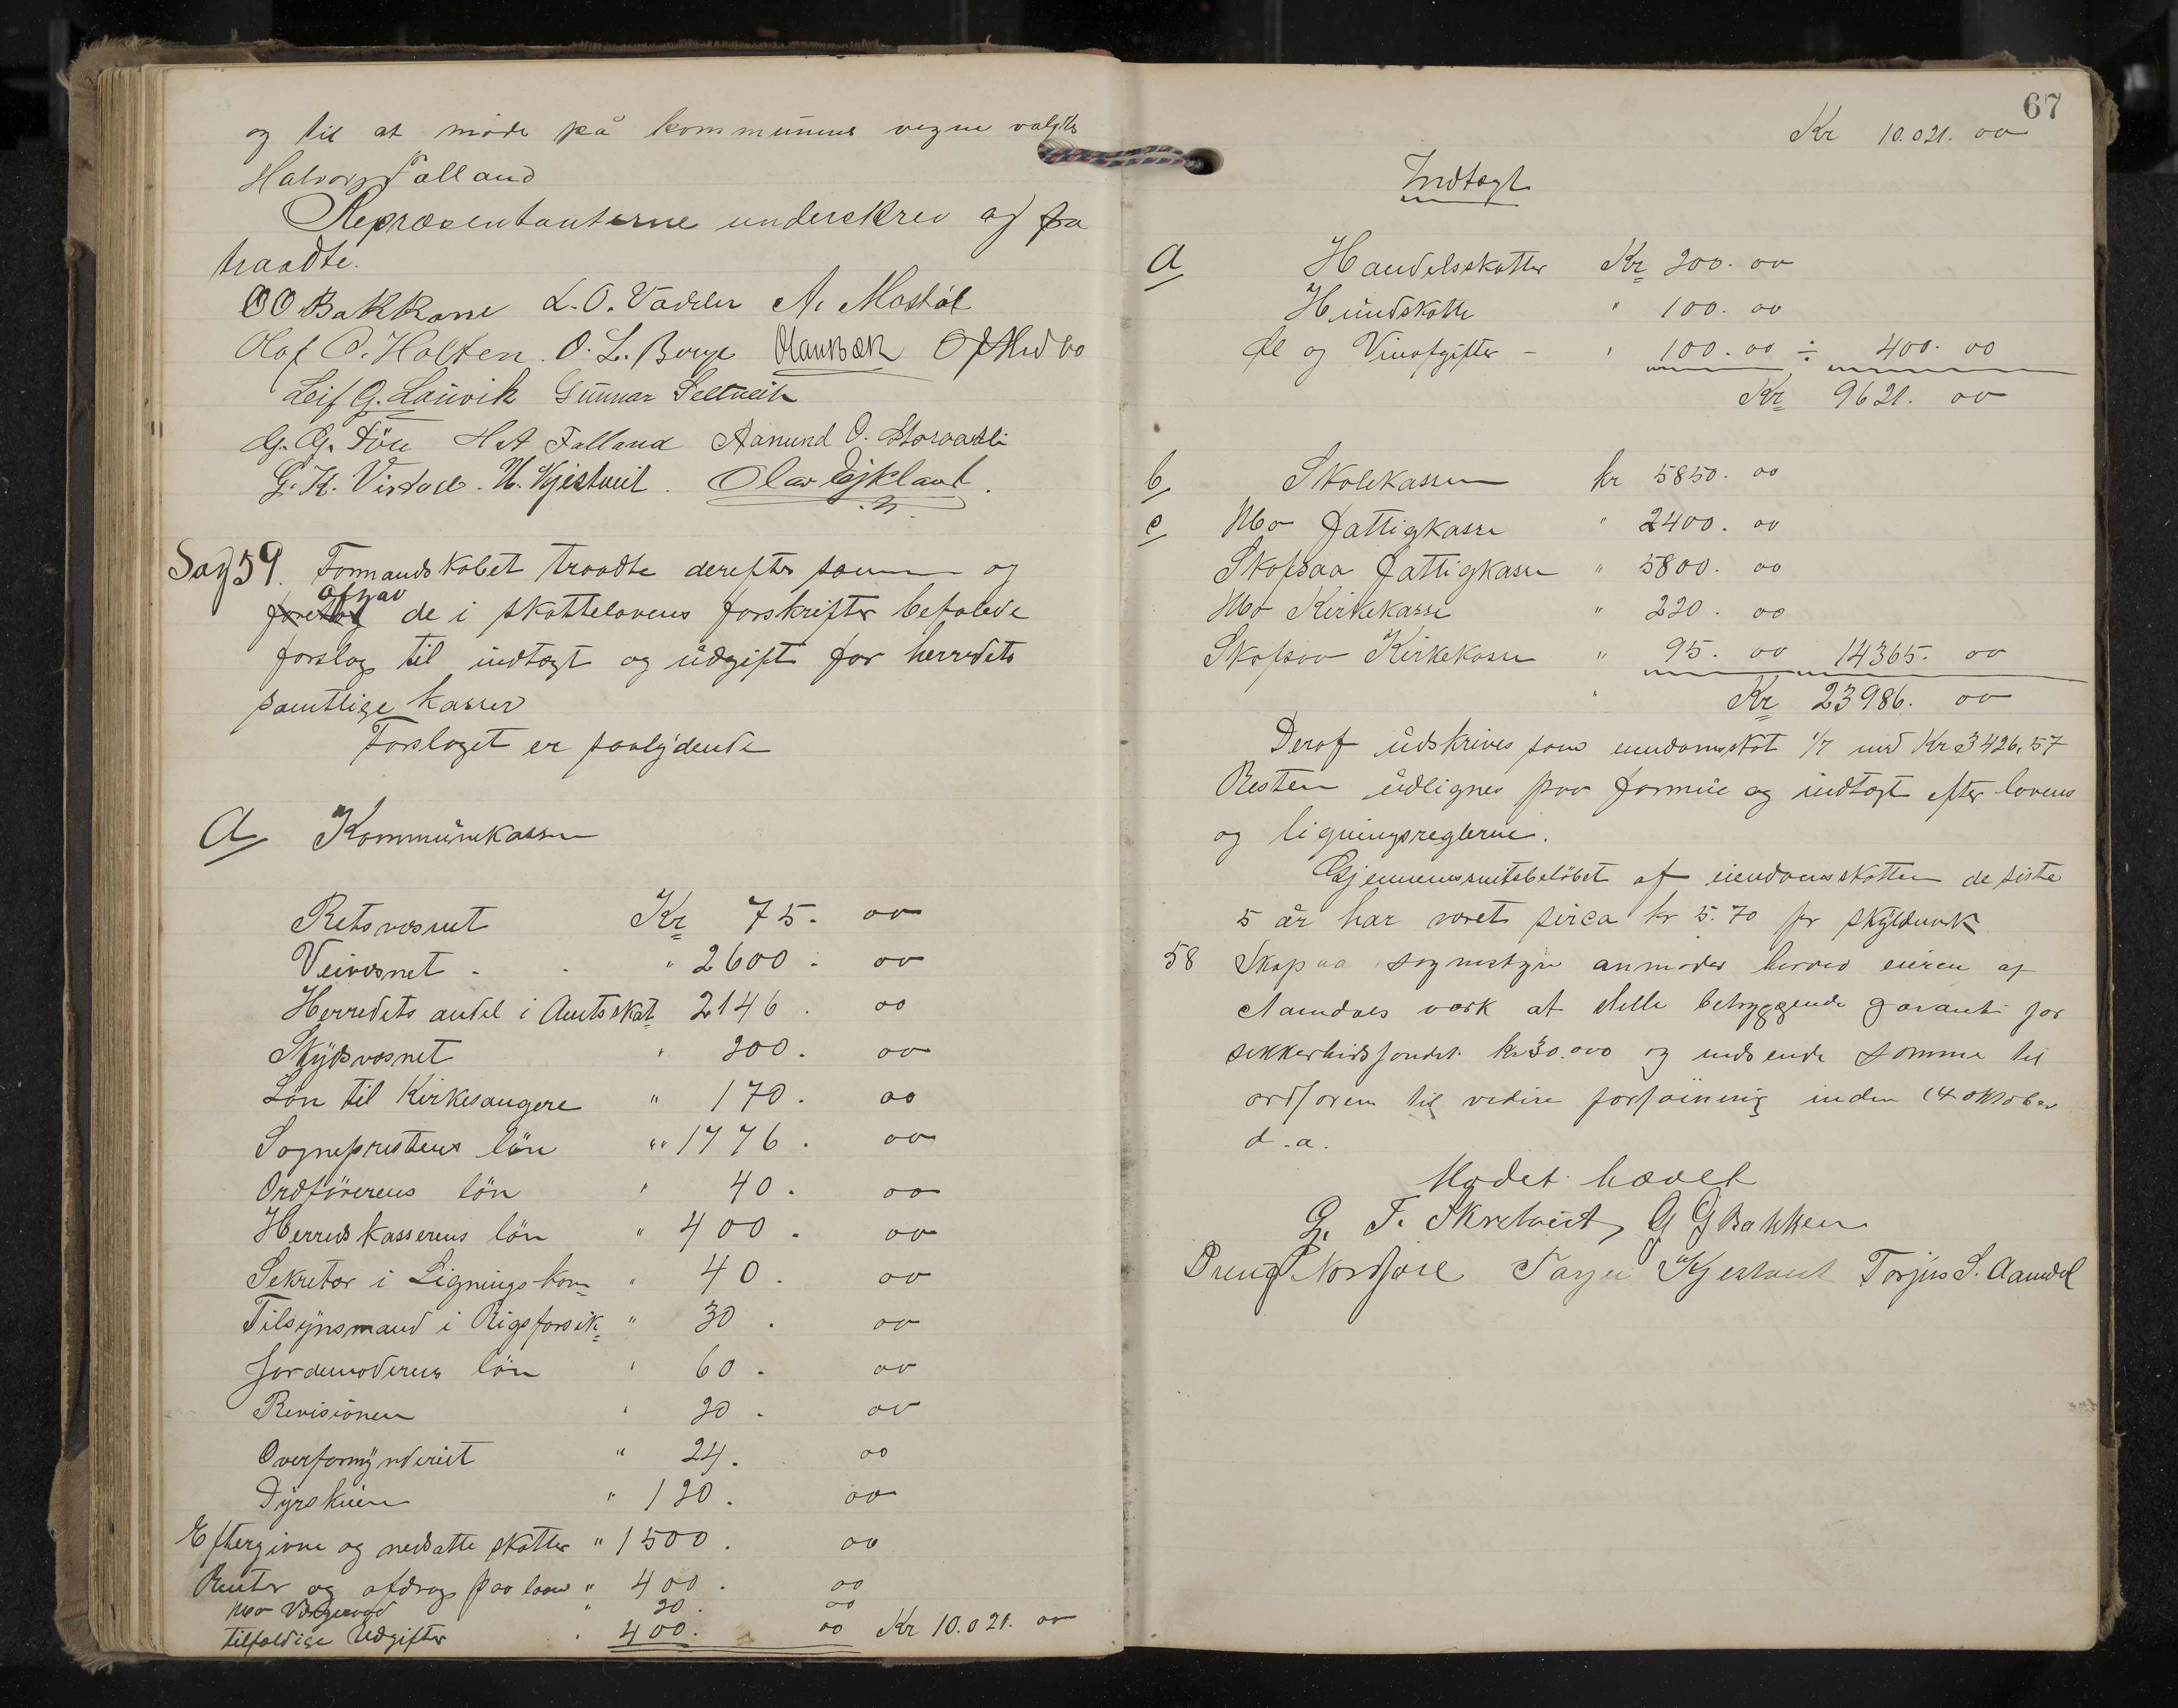 og til at møde på kommunens vegne valgtes
Halvor Falland
Repræsentanterne underskrev og fra
traadte.
OO Bakkane L. O. Vadder A. Mostøl
Olaf O. Holten. O. L. Berge
Leif G. Lauvik Gunnar Seltveit
G. G. H A Falland Aanund O. Storaasli
G. K. N. Kjestveit. Olav Ejkland.
Sag 59. Formandskabet traadte derefter sammen og
afgav
foretog de i skattelovens forskrifter befalede
forslag til indtægt og udgift for herredets
samtlige kasser
Forslaget er saalydende
A Kommunekassen
Retsvæsnet Kr 75. 00
Veivæsnet - " 2600. 00
Herredets andel i Amtsskat 2146. 00
Skydsvæsnet " 200. 00
Løn til Kirkesangere " 170. 00
Sogneprestens løn " 1776. 00
Ordførerens løn " 40. 00
Herredskasserens løn " 400. 00
Sekretær i Lignings-kom " 40. 00
Tilsynsmand i Rigsforsik. " 30. 00
Jordemoderens løn " 60. 00
Revisionen " 20. 00
Overformynderiet " 24. 00
Dyrskuen " 120. 00
Eftergivne og nedsatte skatter " 1500. 00
Renter og afdrag paa laan " 400. 00
Mo Værgeraad " 20. 00
tilfældige Udgifter " 400. 00 Kr 10.021. 00
67
Kr 10.021. 00
Indtægt
A Handelsskatter Kr 200. 00
Hundskatte " 100. 00
Øl og Vinafgifter - " 100. 00 ÷ 400. 00
Kr 9621. 00
b Skolekassen kr 5850. 00
c Mo Fattigkasse " 2400. 00
Skafsaa Fattigkasse " 5800. 00
Mo Kirkekasse " 220. 00
Skafsaa Kirkekasse " 95. 00 14365. 00
Kr 23986. 00
Deraf udskrives som eiendomsskat 1/7 med Kr 3426,57
Resten udlignes paa formue og indtægt efter lovens
og ligningsreglerne.
Gjennemsnitsbeløbet af eiendomsskatten de siste
5 år har været sirca kr 5.70 pr skyldmark
58 Skafsaa sognestyre anmoder herved eieren af
Aamdals værk at stille betryggende garanti for
sikkerhidsfondet kr 30.000 og indsende somme til
ordføren til videre forføining inden 14 oktober
d.a.
Mødet hævet
G. T. Skretveit, G G Bakken
Dreng Nordjore Targei Kjestveit Torjus S. Aamdal